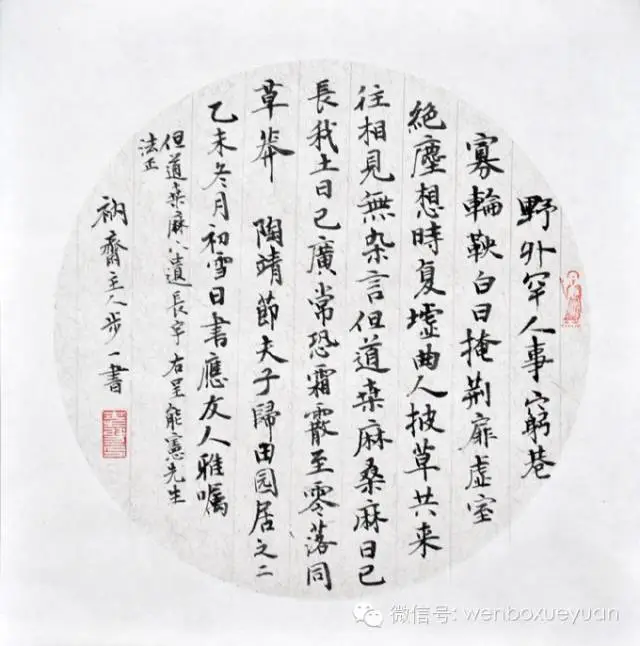 野外罕人事窮巷
寡輪鞅白日掩荆扉虚室
絶塵想時复墟曲人披草共来
往相見無杂言但道桒麻桑麻日已
長我土日已廣常恐霜霰至零落同
草莽 陶靖節夫子歸田园居之二
乙未冬月初雪日書應友人雅嘱
但道桒麻長字右呈能憲先生
法正
衲齋主人步一書
微信号: wenboxueyuan